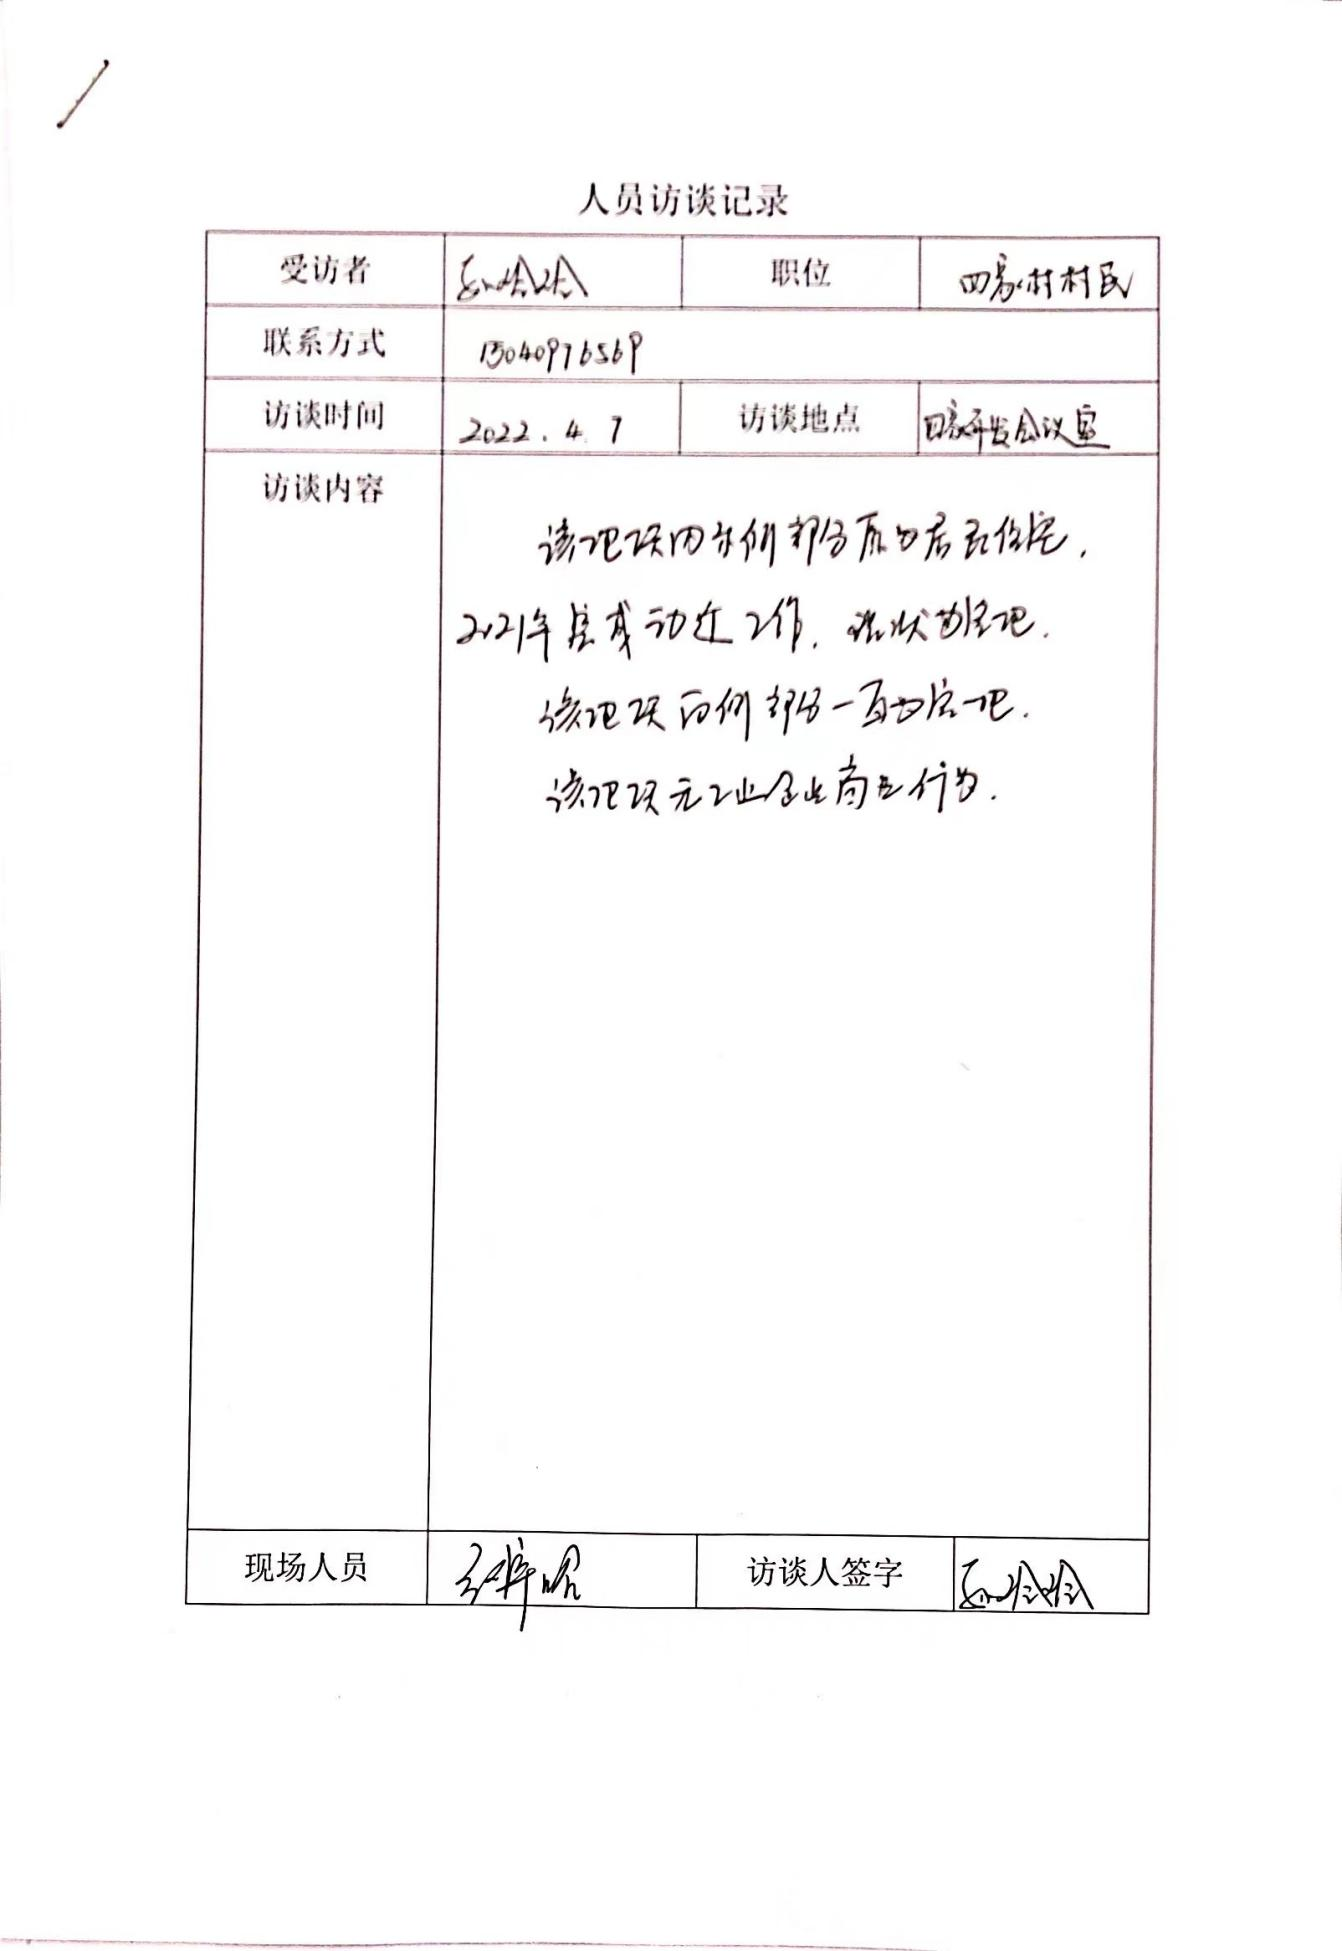 人员访谈记录
受访者 职位 四家村村民
联系方式 13040976569
访谈时间 2022.4.7 访谈地点 四家开发会议室
访谈内容
该地块内东侧部分原为居民住宅,
2021年完成动迁工作,现状为空地.
该地块西侧部分一直为空地.
该地块无工业企业商业行为.
现场人员 访谈人签字